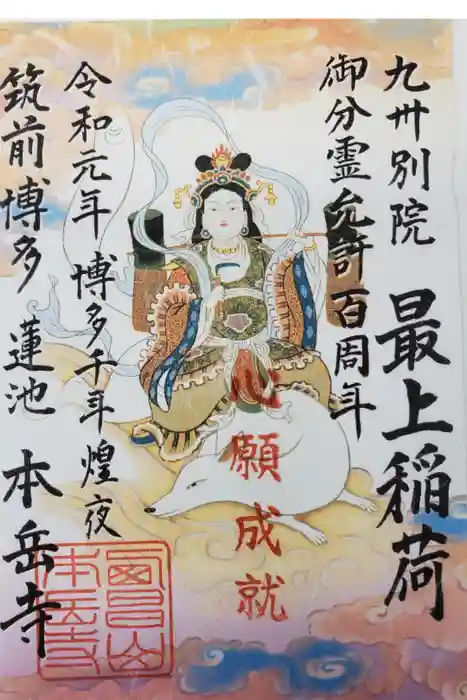 九卅別院
最上稲荷
御分霊允許百周年
心願成就
令和元年 博多千年煌夜
筑前博多 蓮池 本岳寺
本岳寺